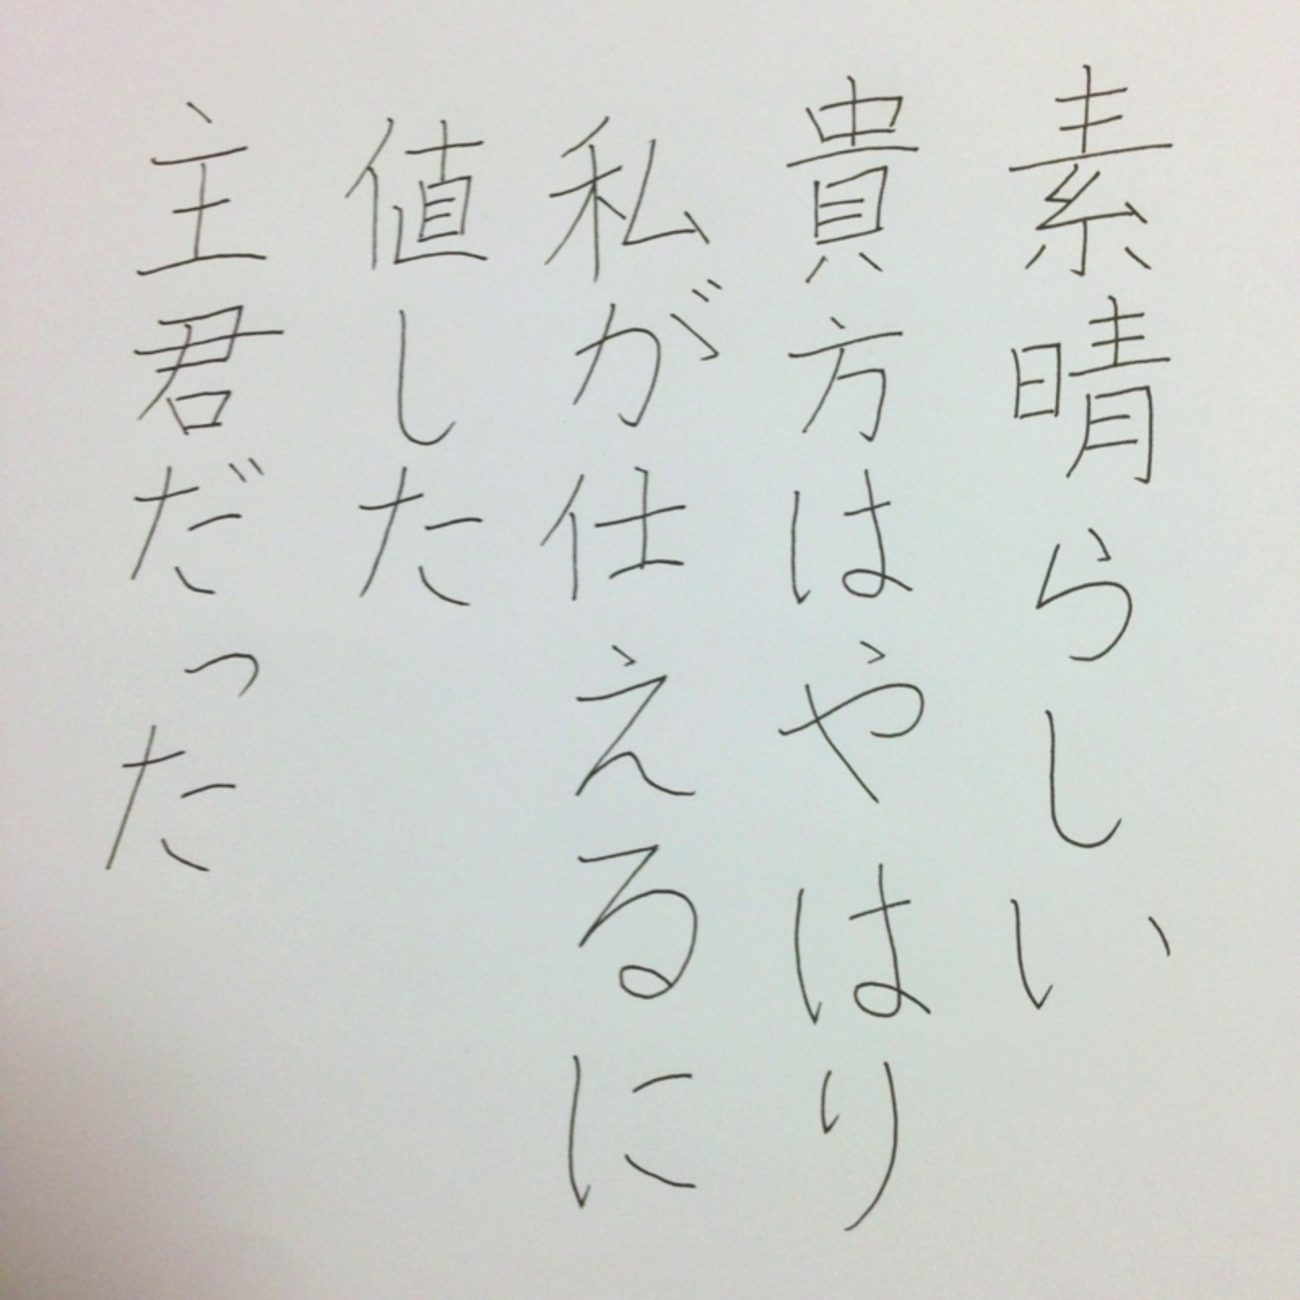 素晴らしい
貴方はやはり
私が仕えるに
値した
主君だった